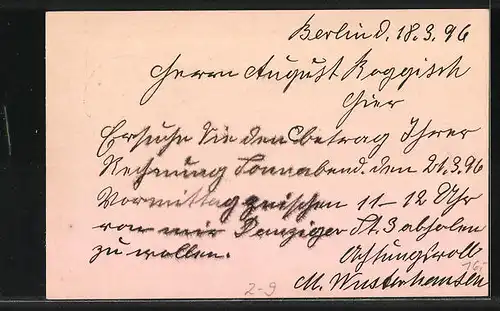 Berlin d. 18.3.96
Herrn August Roggisch
Hier
Ersuche Sie den Betrag Ihrer
Rechnung Sonnabend. den 21.3.96
Vormittag zwischen 11-12 Uhr
von mir Danziger St. 3 abholen
zu wollen.
Achtungsvoll
M. Wusterhausen
2-9